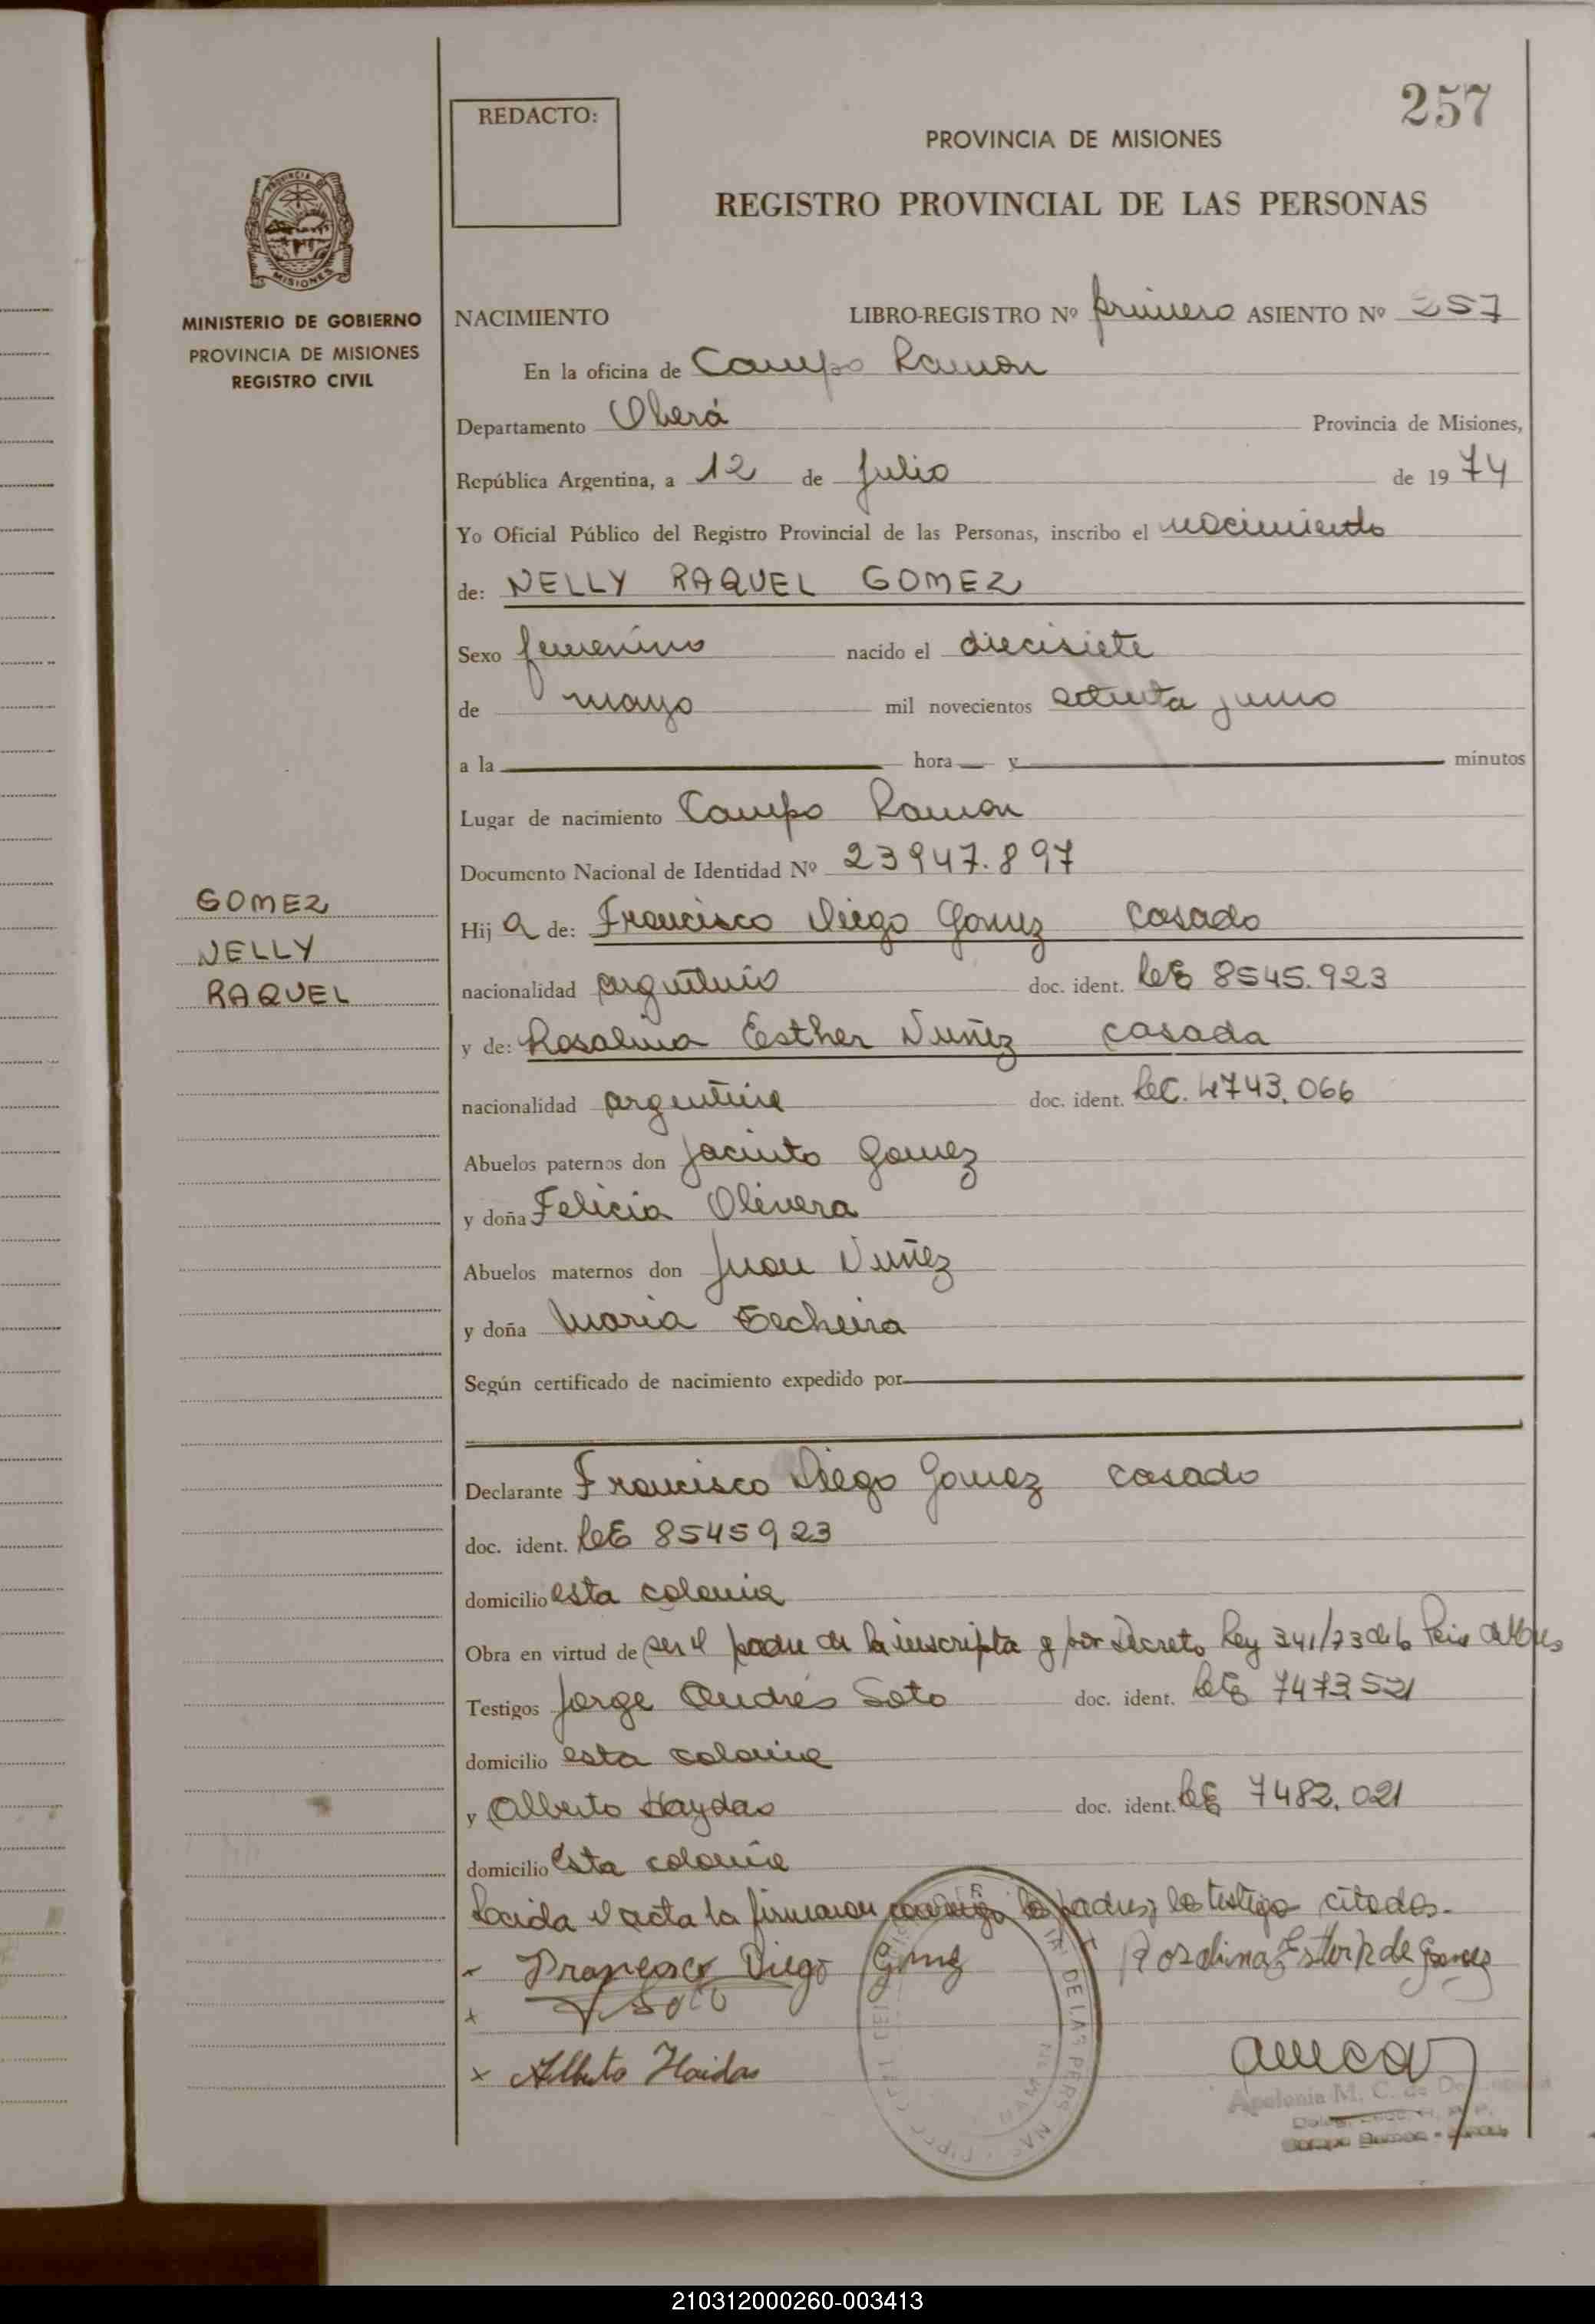 257
REDACTO:
PROVINCIA DE MISIONES
REGISTRO PROVINCIAL DE LAS PERSONAS
PROVINCIA DE
MISIONES
MINISTERIO DE GOBIERNO
PROVINCIA DE MISIONES
REGISTRO CIVIL
NACIMIENTO LIBRO-REGISTRO Nº primero ASIENTO Nº 257
En la oficina de Campo Ramon
Departamento Oberá Provincia de Misiones,
República Argentina, a 12 de Julio de 1974
Yo Oficial Público del Registro Provincial de las Personas, inscribo el nacimiento
de: NELLY RAQUEL GOMEZ
Sexo femenino nacido el diecisiete
de mayo mil novecientos
a la hora y minutos
Lugar de nacimiento Campo Ramon
Documento Nacional de Identidad Nº 23947.897
GOMEZ
NELLY
RAQUEL
Hija de: Francisco Diego Gomez casado
nacionalidad argentino doc. ident. LeE 8545.923
y de: Rosalina Esther Nuñez casada
nacionalidad argentina doc. ident. LeC. 4743.066
Abuelos paternos don Jacinto Gomez
y doña Felicia Olivera
Abuelos maternos don Juan Nuñez
y doña Maria
Según certificado de nacimiento expedido por
Declarante Francisco Diego Gomez casado
doc. ident. LeE 8545923
domicilio esta colonia
Obra en virtud de ser el padre de la inscripta y por Decreto Ley 341/73 de la
Testigos Jorge Andrés Soto doc. ident. LeE 7473521
domicilio esta colonia
y Alberto Haydas doc. ident. LeE 7482.021
domicilio esta colonia
Leida el acta la firmaron conmigo los padres y los testigos citados.-
Francisco Diego Gomez Rosalina Ester N de Gomez
Soto
x Alberto Haidas
Apolonia M. C. de
DE LAS PERS
210312000260-003413